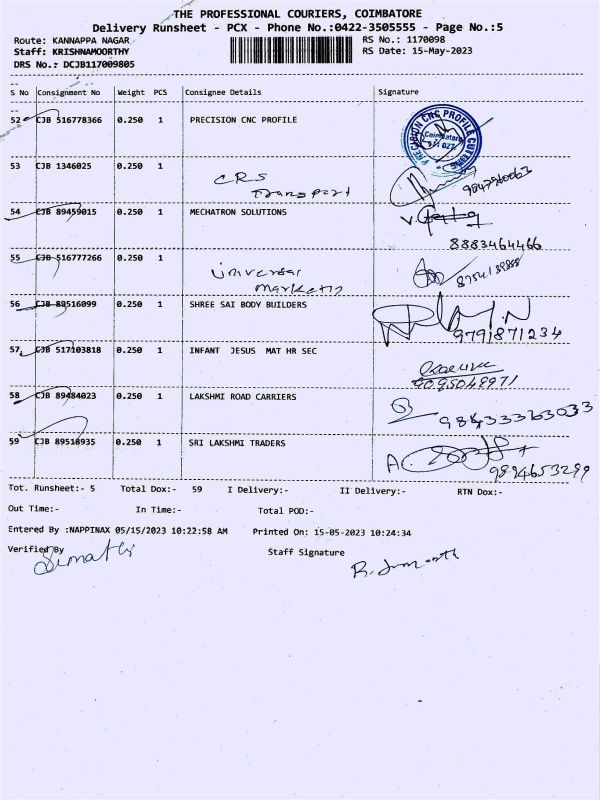 THE PROFESSIONAL COURIERS, COIMBATORE
Delivery Runsheet - PCX - Phone No.:0422-3505555 - Page No.:5
Route: KANNAPPA NAGAR RS No.: 1170098
Staff: KRISHNAMOORTHY RS Date: 15-May-2023
DRS No.: DCJB117009805
S No Consignment No Weight PCS Consignee Details Signature
52 CJB 516778366 0.250 1 PRECISION CNC PROFILE
PRECISION CNC PROFILE CUTTING Coimbatore
53 CJB 1346025 0.250 1 CRS Transport
54 CJB 89459015 0.250 1 MECHATRON SOLUTIONS
8883464466
55 CJB 516777266 0.250 1 Universal Marketin
56 CJB 89516099 0.250 1 SHREE SAI BODY BUILDERS
9791871234
57 CJB 517103818 0.250 1 INFANT JESUS MAT HR SEC
9095049971
58 CJB 89484023 0.250 1 LAKSHMI ROAD CARRIERS
59 CJB 89518935 0.250 1 SRI LAKSHMI TRADERS
9894653299
Tot. Runsheet:- 5 Total Dox:- 59 I Delivery:- II Delivery:- RTN Dox:-
Out Time:- In Time:- Total POD:-
Entered By :NAPPINAX 05/15/2023 10:22:58 AM Printed On: 15-05-2023 10:24:34
Verified By Staff Signature